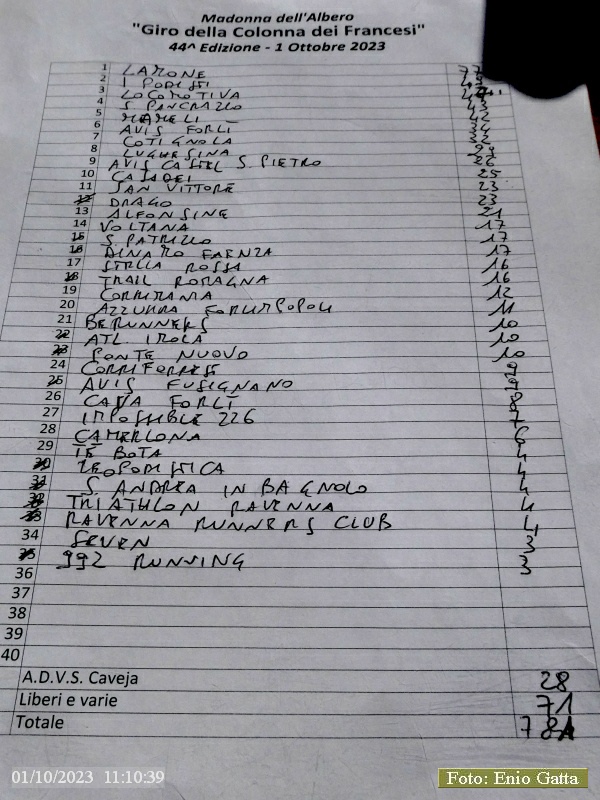 Madonna dell'Albero
"Giro della Colonna dei Francesi"
44^ Edizione - 1 Ottobre 2023
1 LAMONE
2 I PODISTI
3 LOCOMOTIVA
4 S PANCRAZIO 43
5 MAMELI 42
6 AVIS FORLI 34
7 COTIGNOLA 32
8 LUGHESINA 29
9 AVIS CASTEL S. PIETRO 26
10 CASADEI 25
11 SAN VITTORE 23
12 DRAGO 23
13 ALFONSINE 21
14 VOLTANA 17
15 S. PATRIZIO 17
16 DINAMO FAENZA 17
17 STELLA ROSSA 16
18 TRAIL ROMAGNA 16
19 CORRITANIA 12
20 AZZURRA FORLIMPOPOLI 11
21 BERUNNERS 10
22 ATL. IMOLA 10
23 PONTE NUOVO 10
24 CORRIFORREST 9
25 AVIS FUSIGNANO 9
26 CAVA FORLI 8
27 IMPOSSIBLE 226 7
28 CAMERLONA 6
29 TE BOTA 4
30 LEOPODISTICA 4
31 S ANDREA IN BAGNOLO 4
32 TRIATHLON RAVENNA 4
33 RAVENNA RUNNERS CLUB 4
34 SEVEN 3
35 992 RUNNING 3
36
37
38
39
40
A.D.V.S. Caveja 28
Liberi e varie 71
Totale 781
01/10/2023 11:10:39
Foto: Enio Gatta